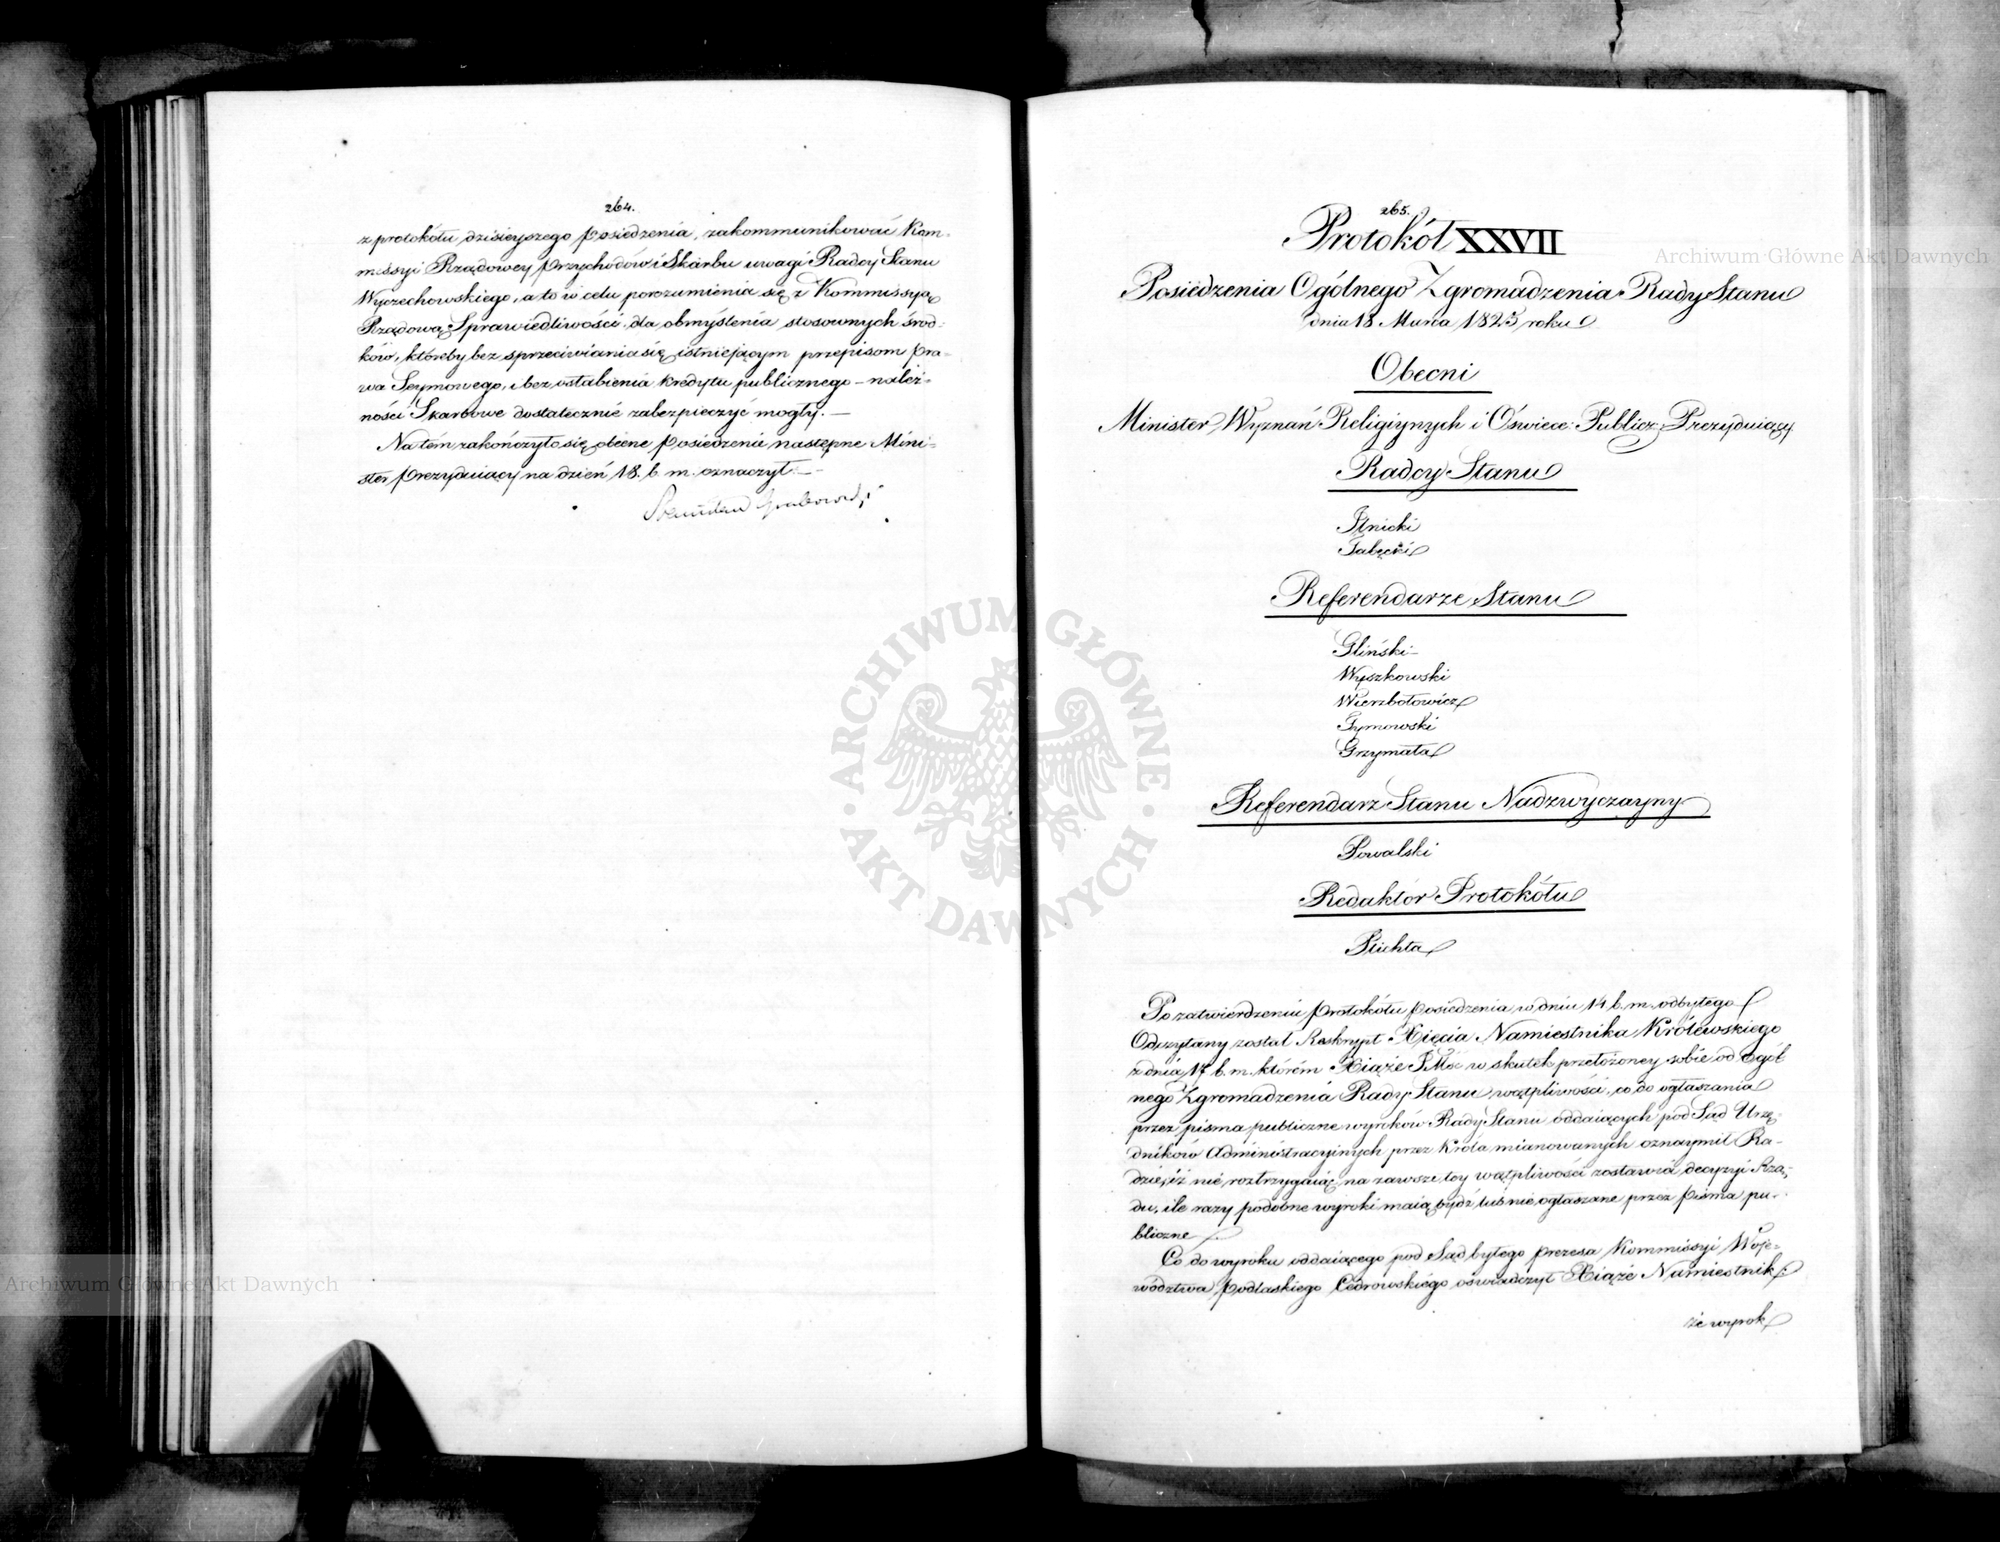 264.
z protokółu dzisieyszego posiedzenia, zakommunikować Kom-
missyi Rządowey Przychodów i Skarbu uwagi Radcy Stanu
Wyczechowskiego, a to w celu porozumienia się z Kommissyą
Rządową Sprawiedliwości, dla obmyślenia stosownych środ-
ków, któreby bez sprzeciwiania się istniejącym przepisom pra-
wa Seymowego, i bez osłabienia kredytu publicznego – należ-
ności Skarbowe dostatecznie zabezpieczyć mogły. —
Na tém zakończyło się obecne posiedzenie następne Mini-
ster prezyduiący na dzień 18. b. m. oznaczył. —
Stanisław Grabowski
265.
Protokół XXVII
Posiedzenia Ogólnego Zgromadzenia Rady Stanu
dnia 18 Marca 1825 roku
Obecni
Minister Wyznań Religiynych i Oświece: Publicz: Prezyduiący
Radcy Stanu
Ilnicki
Tabęcki
Referendarze Stanu
Gliński
Wyszkowski
Wierzbołowicz
Tymowski
Grzymała
Referendarz Stanu Nadzwyczayny
Kowalski
Redaktór Protokółu
Plichta
Po zatwierdzeniu protokółu posiedzenia w dniu 14 b. m. odbytego
Odczytany został Reskrypt Xięcia Namiestnika Królewskiego
z dnia 17 b. m. którém Xiąże JMć w skutek przełożoney sobie od Ogól
nego Zgromadzenia Rady Stanu wątpliwości, co do ogłaszania
przez pisma publiczne wyroków Rady Stanu oddaiących pod Sąd Urzę-
dników Administracyinych przez Króla mianowanych oznaymił Ra-
dzie, iż nie roztrzygaiąc na zawsze tey wątpliwości zostawia decyzyi Rzą-
du, ile razy podobne wyroki maią bydź lub nie ogłaszane przez pisma pu-
bliczne
Co do wyroku oddaiącego pod Sąd byłego prezesa Kommissyi Woje-
wództwa Podlaskiego Cedrowskiego oświadczył Xiąże Namiestnik
że wyrok
Archiwum Główne Akt Dawnych
Archiwum Główne Akt Dawnych
ARCHIWUM GŁÓWNE · AKT DAWNYCH ·